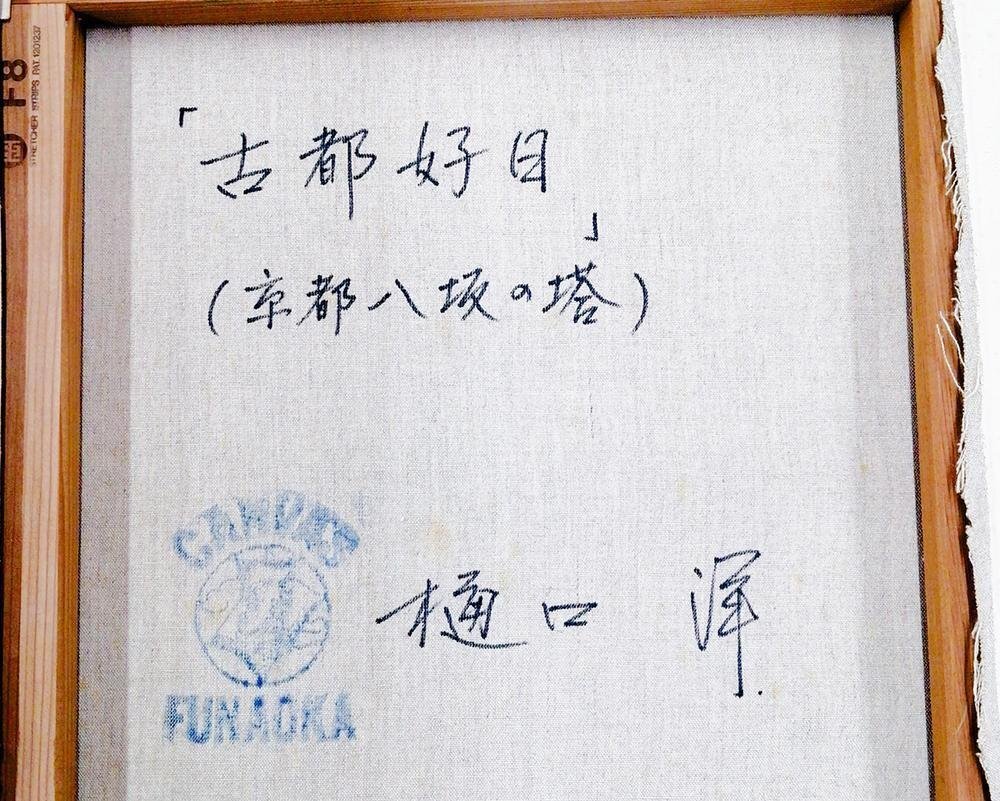 「古都好日」
(京都八坂の塔)
樋口 渾.
CANVAS
FUNAOKA
F8
STRETCHER STRIPS PAT.1201237